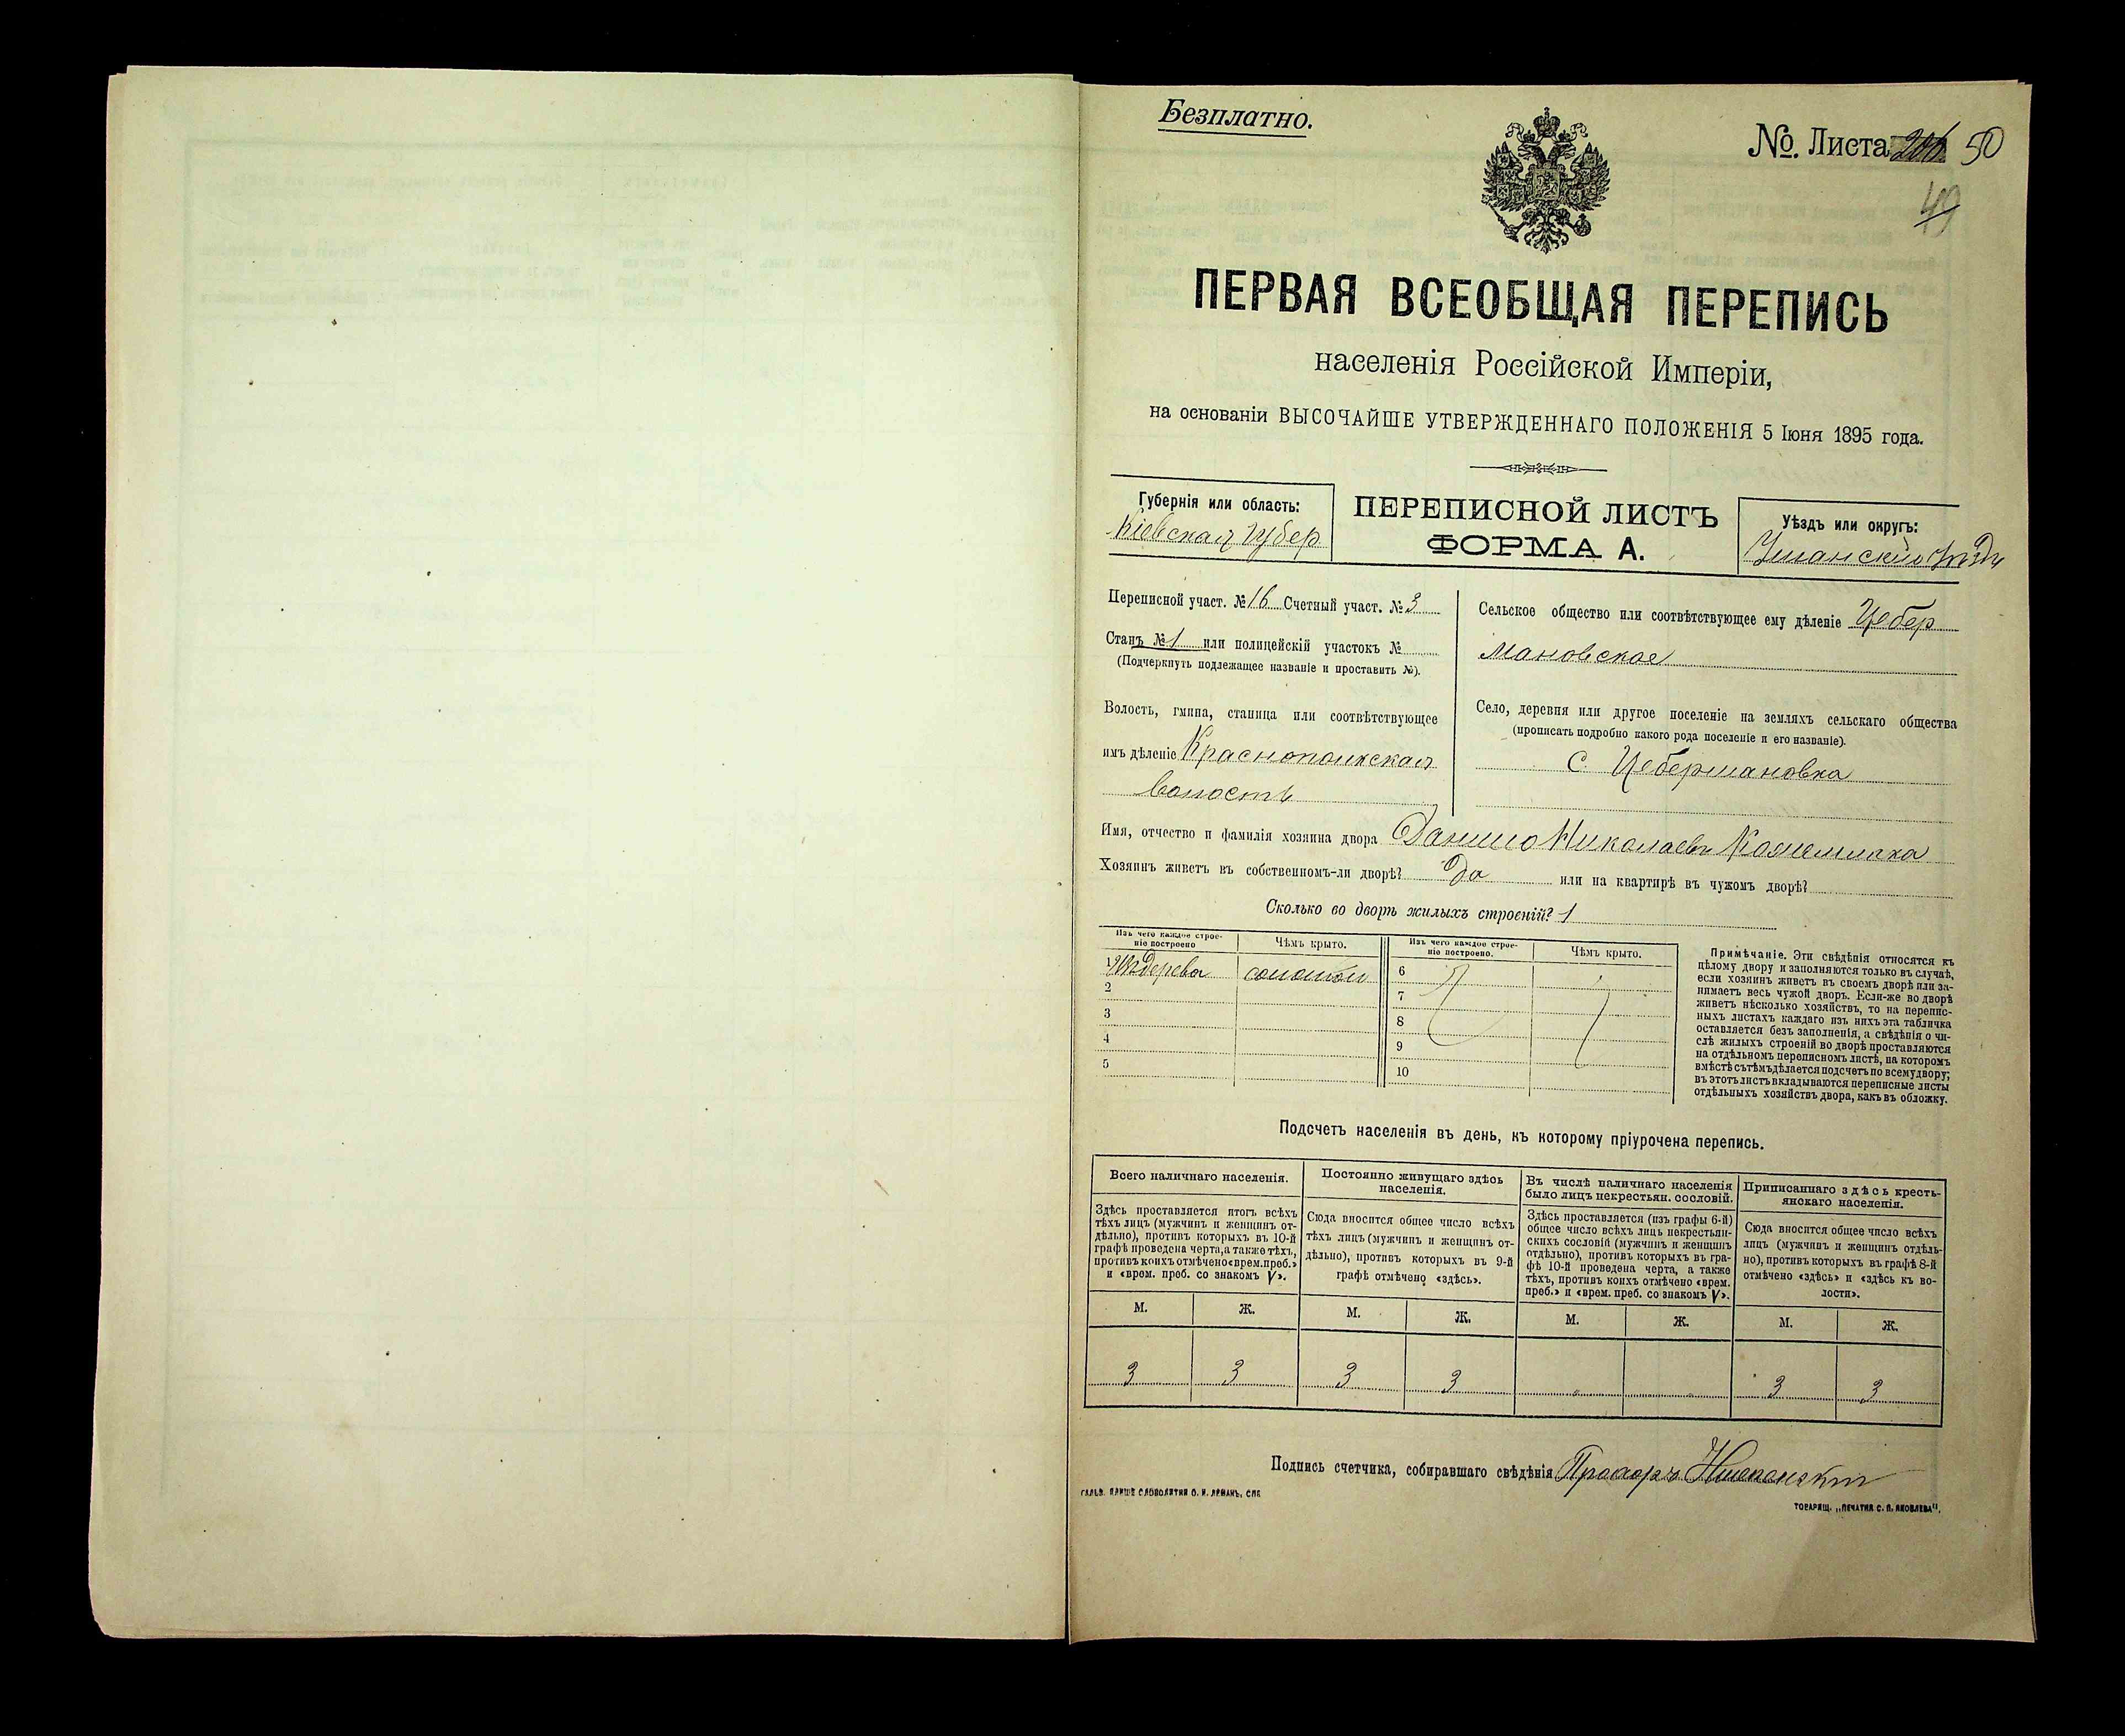 Безплатно.
№ Листа 50
49
ПЕРВАЯ ВСЕОБЩАЯ ПЕРЕПИСЬ
населенія Россійской Имперіи,
на основаніи ВЫСОЧАЙШЕ УТВЕРЖДЕННАГО ПОЛОЖЕНІЯ 5 Іюня 1895 года.
Губернія или область:
Кіевская Губер
ПЕРЕПИСНОЙ ЛИСТЪ
ФОРМА А.
Уѣздъ или округъ:
Уманскій
Переписной участ. № 16 Счетный участ. № 3
Станъ № 1 или полицейскій участокъ №
(Подчеркнуть подлежащее названіе и проставить №).
Волость, гмина, станица или соотвѣтствующее
имъ дѣленіе Краснопольская
волость
Сельское общество или соотвѣтствующее ему дѣленіе Цебер
мановское
Село, деревня или другое поселеніе на земляхъ сельскаго общества
(прописать подробно какого рода поселеніе и его названіе).
с. Цебермановка
Имя, отчество и фамилія хозяина двора Данило Николаевъ
Хозяинъ живетъ въ собственномъ-ли дворѣ? Да или на квартирѣ въ чужомъ дворѣ?
Сколько во дворѣ жилыхъ строеній? 1
Изъ чего каждое строе-
ніе построено
Чѣмъ крыто.
Изъ чего каждое строе-
ніе построено.
Чѣмъ крыто.
1 Изъ дерева соломой
2
3
4
5
6
7
8
9
10
Примѣчаніе. Эти свѣдѣнія относятся къ
цѣлому двору и заполняются только въ случаѣ,
если хозяинъ живетъ въ своемъ дворѣ или за-
нимаетъ весь чужой дворъ. Если-же во дворѣ
живетъ нѣсколько хозяйствъ, то на перепис-
ныхъ листахъ каждаго изъ нихъ эта табличка
оставляется безъ заполненія, а свѣдѣнія о чи-
слѣ жилыхъ строеній во дворѣ проставляются
на отдѣльномъ переписномъ листѣ, на которомъ
вмѣстѣ съ тѣмъ дѣлается подсчетъ по всему двору;
въ этотъ листъ вкладываются переписные листы
отдѣльныхъ хозяйствъ двора, какъ въ обложку.
Подсчетъ населенія въ день, къ которому пріурочена перепись.
Всего наличнаго населенія.
Здѣсь проставляется итогъ всѣхъ
тѣхъ лицъ (мужчинъ и женщинъ от-
дѣльно), противъ которыхъ въ 10-й
графѣ проведена черта, а также тѣхъ,
противъ коихъ отмѣчено «врем. преб.»
и «врем. преб. со знакомъ V».
Постоянно живущаго здѣсь
населенія.
Сюда вносится общее число всѣхъ
тѣхъ лицъ (мужчинъ и женщинъ от-
дѣльно), противъ которыхъ въ 9-й
графѣ отмѣчено «здѣсь».
Въ числѣ наличнаго населенія
было лицъ некрестьян. сословій.
Здѣсь проставляется (изъ графы 6-й)
общее число всѣхъ лицъ некрестьян-
скихъ сословій (мужчинъ и женщинъ
отдѣльно), противъ которыхъ въ гра-
фѣ 10-й проведена черта, а также
тѣхъ, противъ коихъ отмѣчено «врем.
преб.» и «врем. преб. со знакомъ V».
Приписаннаго здѣсь кресть-
янскаго населенія.
Сюда вносится общее число всѣхъ
лицъ (мужчинъ и женщинъ отдѣль-
но), противъ которыхъ въ графѣ 8-й
отмѣчено «здѣсь» и «здѣсь къ во-
лости».
М. Ж. М. Ж. М. Ж. М. Ж.
3 3 3 3 3 3
Подпись счетчика, собиравшаго свѣдѣнія Прохоръ
ГАЛЬВ. КЛИШЕ СЛОВОЛИТНИ О. И. ЛЕМАНЪ, СПБ
ТОВАРИЩ. „ПЕЧАТНЯ С. П. ЯКОВЛЕВА".